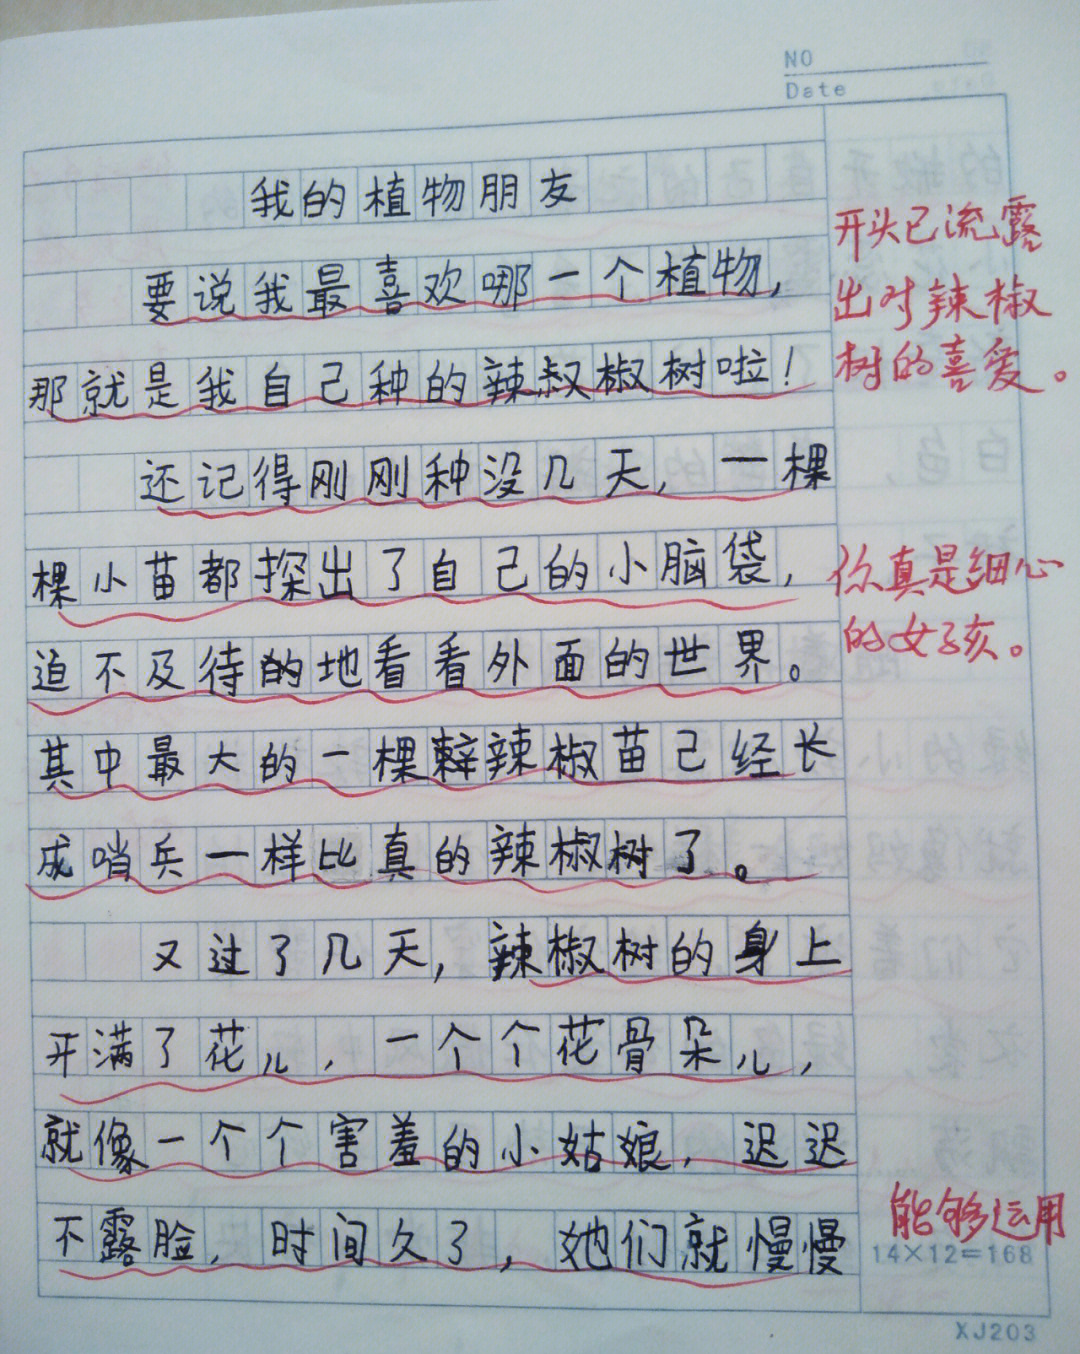 NO
Date
我的植物朋友
要说我最喜欢哪一个植物，
那就是我自己种的辣椒树啦！
还记得刚刚种没几天，一棵
棵小苗都探出了自己的小脑袋，
迫不及待的地看看外面的世界。
其中最大的一棵辣椒苗已经长
成哨兵一样比真的辣椒树了。
又过了几天，辣椒树的身上
开满了花儿，一个个花骨朵儿，
就像一个个害羞的小姑娘，迟迟
不露脸，时间久了，她们就慢慢
开头已流露
出对辣椒
树的喜爱。
你真是细心
的女孩。
能够运用
14×12=168
XJ203